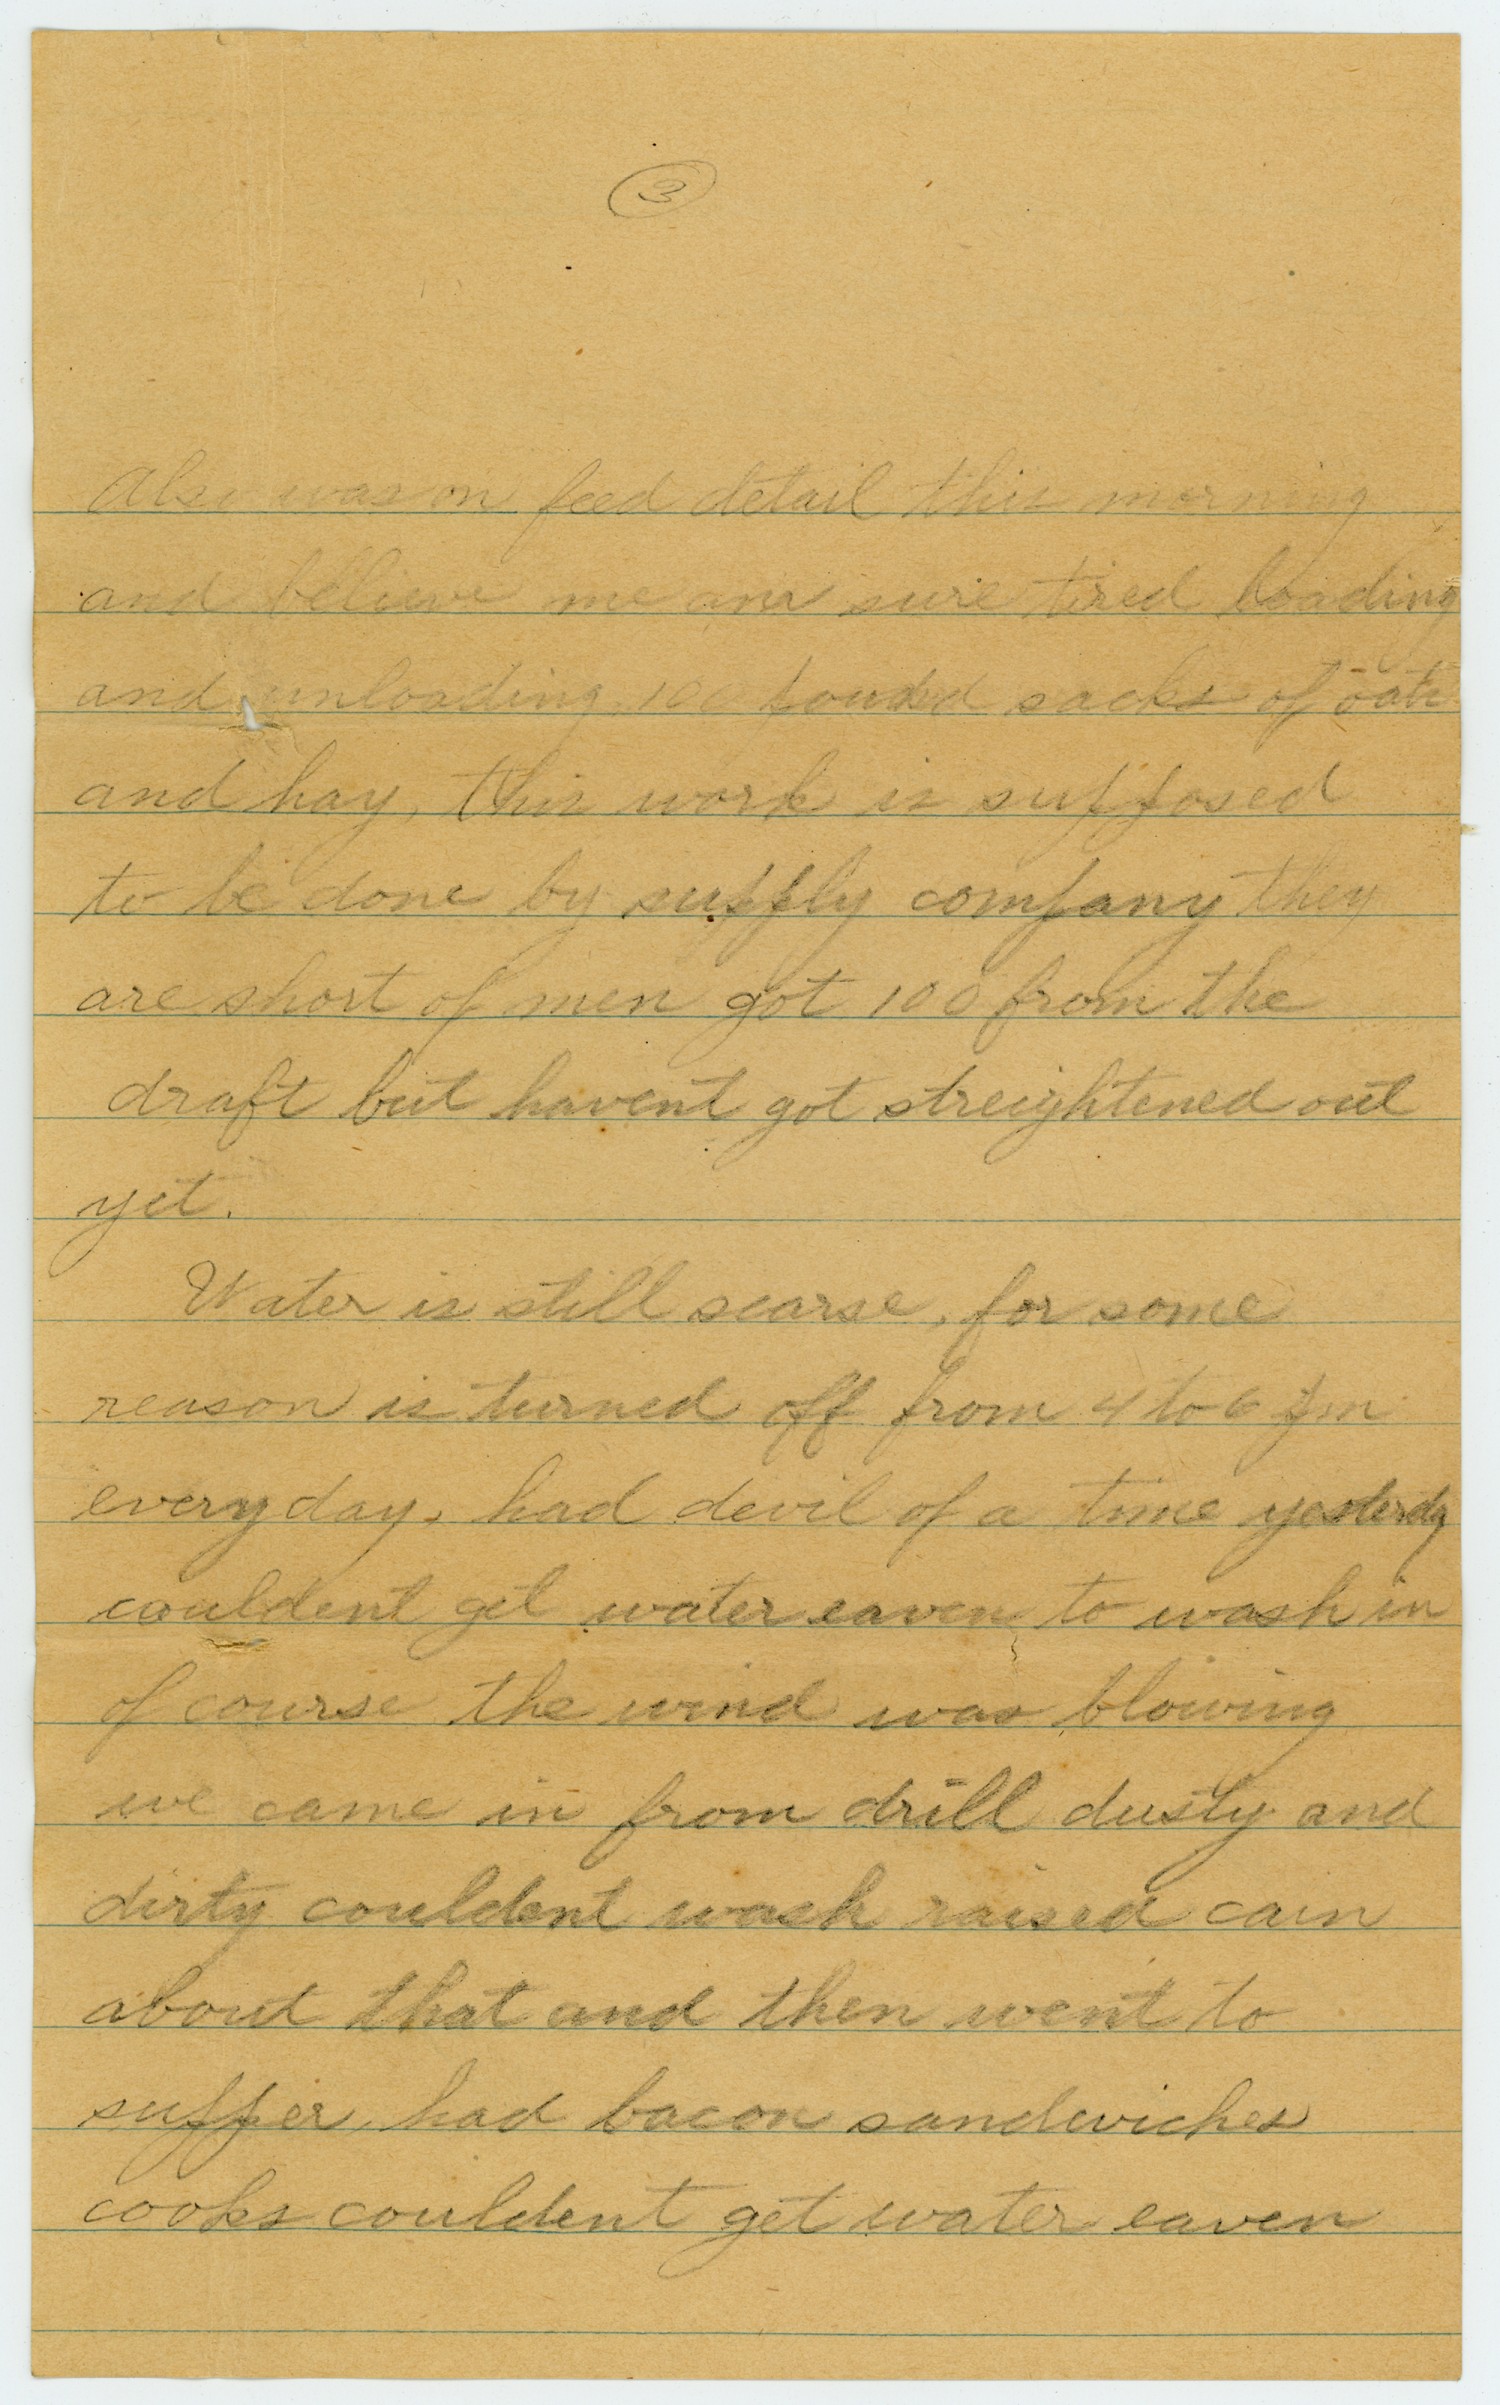 3
Also was on feed detail this morning
and believe me am sure tired loading
and unloading 100 pound sacks of oats
and hay, this work is supposed
to be done by supply company they
are short of men got 100 from the
draft but havent got streightened out
yet.
Water is still scarse, for some
reason is turned off from 4 to 6 pm
everyday, had devil of a time yesterdy
couldent get water eaven to wash in
of course the wind was blowing
we came in from drill dusty and
dirty couldent wash raised cain
about that and then went to
supper, had bacon sandwiches
cooks couldent get water eaven